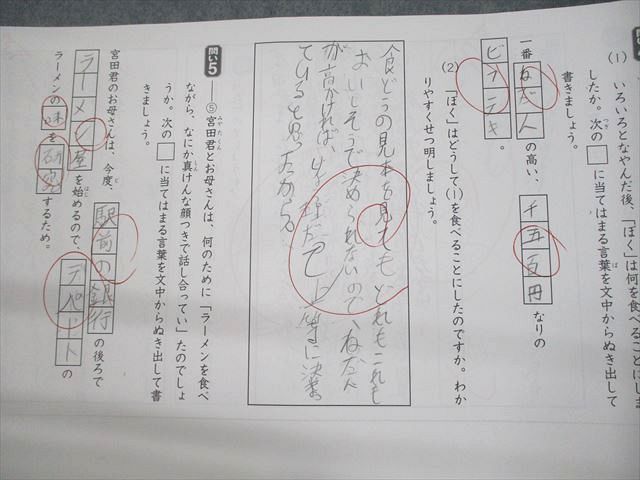 (1) いろいろとなやんだ後、「ぼく」は何を食べることにし
したか。次の□に当てはまる言葉を文中からぬき出して
書きましょう。
一番ねだんの高い、千五百円なりの
ビフテキ。
(2) 「ぼく」はどうして(1)を食べることにしたのですか。わか
りやすくせつ明しましょう。
食どうの見本を見ても、どれもこれも
おいしそうで決められないので、ねだん
が高かければ
ていると思ったから。
問い5
⑤宮田君とお母さんは、何のために「ラーメンを食べ
ながら、なにか真けんな顔つきで話し合ってい」たのでしょ
うか。次の□に当てはまる言葉を文中からぬき出して書
きましょう。
宮田君のお母さんは、今度、駅前の銀行の後ろで
ラーメン屋を始めるので、デパートの
ラーメンの味を研究するため。